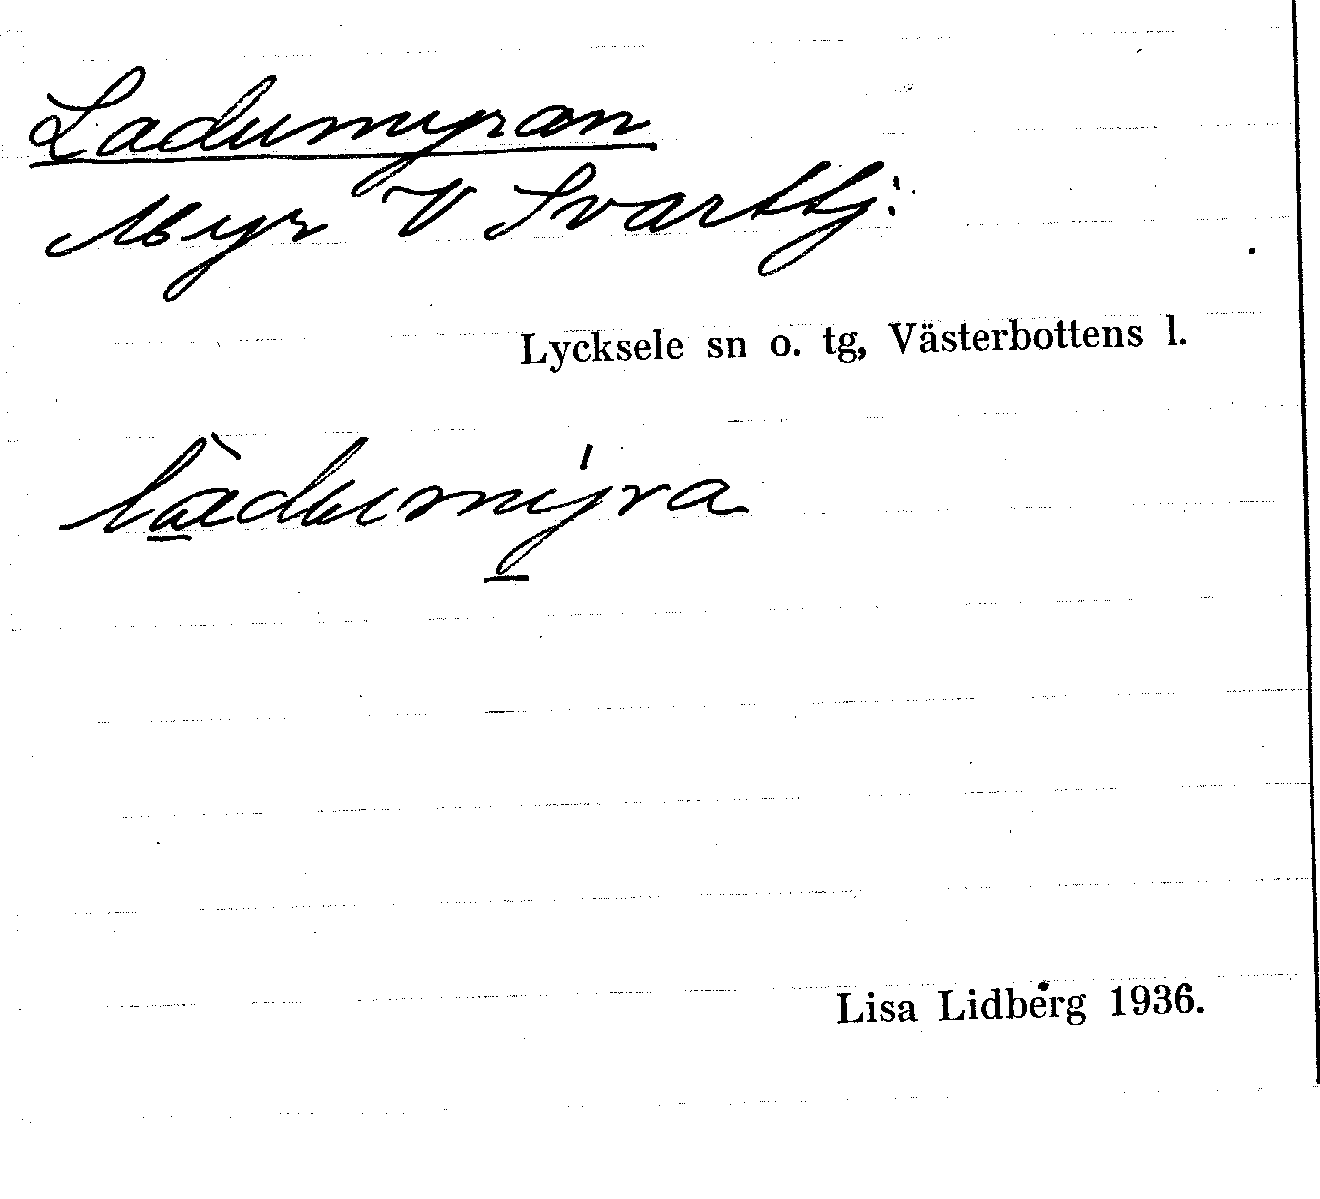 Ladumyran
Myr V Svarttj:
Lycksele sn o. tg, Västerbottens l.
làdumýra
Lisa Lidberg 1936.